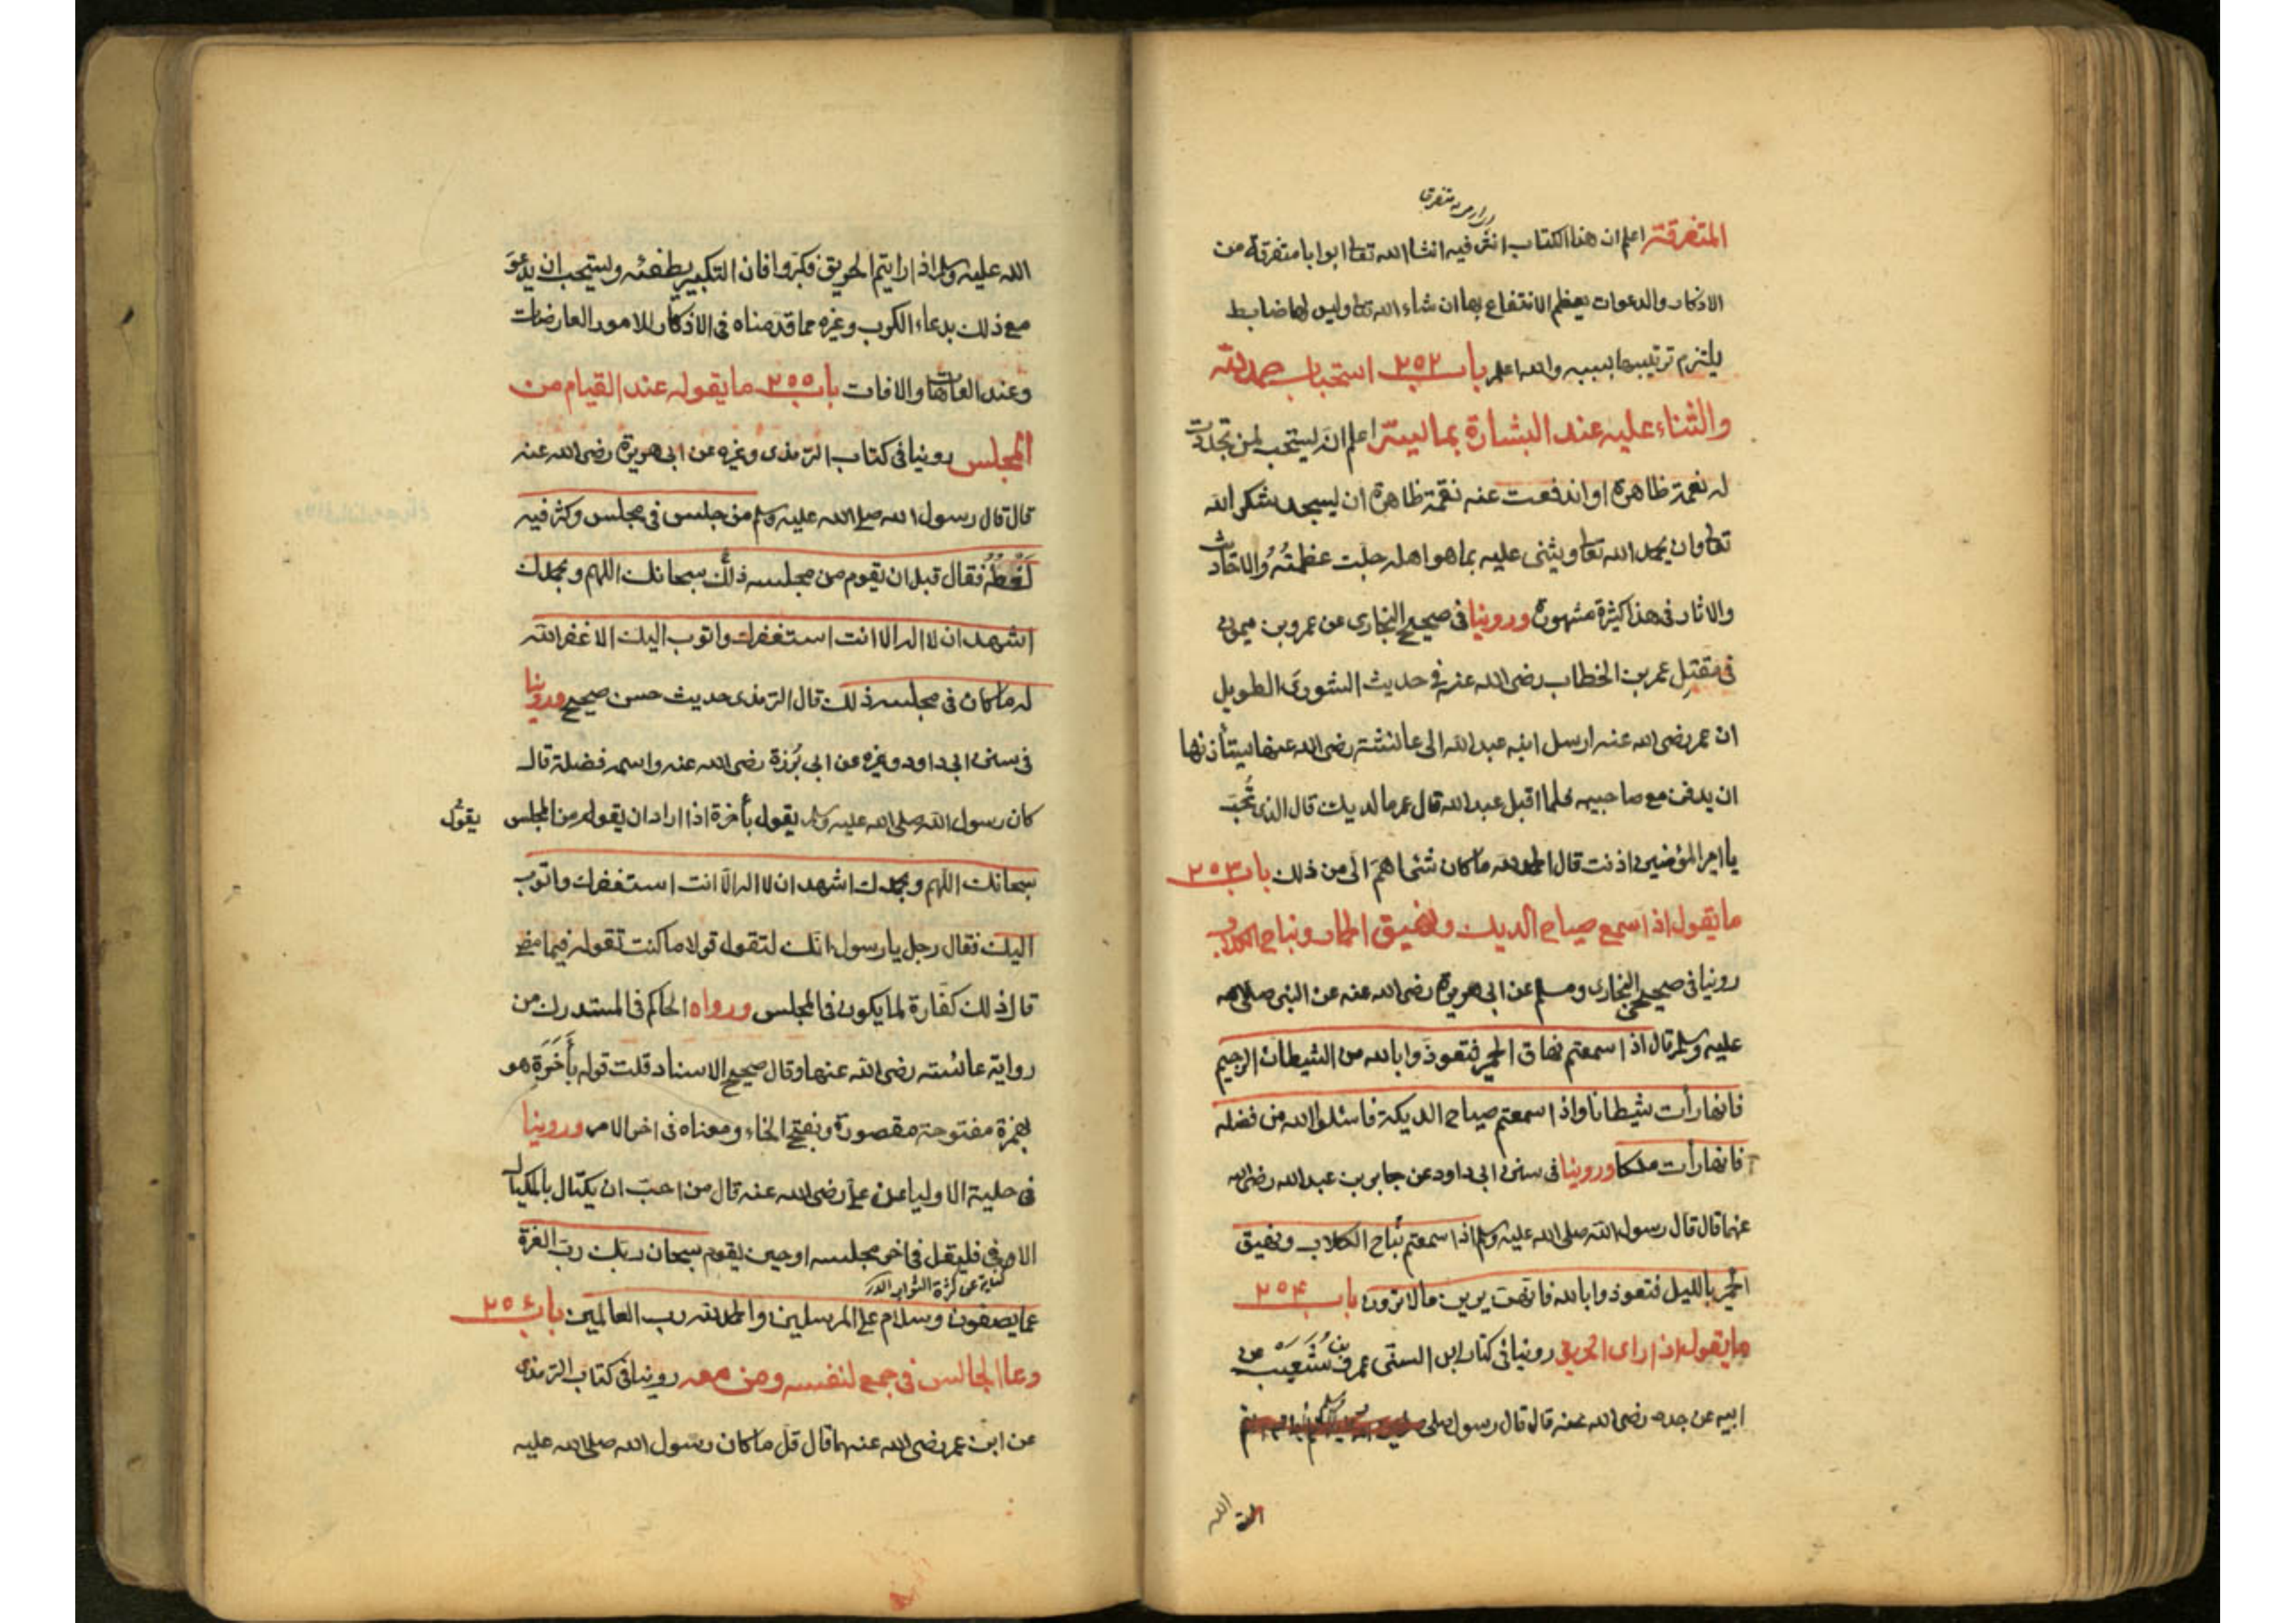 المتفرقة اعلم ان هذا الكتاب انثر فيه انشا الله تعا ابوابا متفرقة من
الاذكار والدعوات يعظم الانتفاع بها ان شاء الله تعا وليس لها ضابط
يلتزم ترتيبها بسببه والله اعلم باب ٢٥٢ استحباب حمد الله
والثناء عليه عند البشارة بما يسره اعلم انه يستحب لمن تجددت
له نعمة ظاهرة او اندفعت عنه نقمة ظاهرة ان يسجد شكرا لله
تعا وان يحمد الله تعا ويثنى عليه بما هو اهله جلت عظمته والاحاديث
والاثار فى هذا كثيرة مشهورة وروينا فى صحيح البخارى عن عمرو بن ميمون
فى مقتل عمر بن الخطاب رضى الله عنه فى حديث الشورى الطويل
ان عمر رضى الله عنه ارسل ابنه عبد الله الى عائشة رضى الله عنها يستأذنها
ان يدفن مع صاحبيه فلما اقبل عبد الله قال عمر ما لديك قال الذى تحب
يا امير المؤمنين اذنت قال الحمد لله ما كان شئ اهم الى من ذلك باب ٢٥٣
ما يقول اذا سمع صياح الديك ونهيق الحمار ونباح الكلاب
روينا فى صحيحى البخارى ومسلم عن ابى هريرة رضى الله عنه عن النبى صلى الله
عليه وسلم قال اذا سمعتم نهاق الحمير فتعوذوا بالله من الشيطان الرجيم
فانها رأت شيطانا واذا سمعتم صياح الديكة فاسئلوا الله من فضله
فانها رأت ملكا وروينا فى سنن ابى داود عن جابر بن عبد الله رضى الله
عنهما قال قال رسول الله صلى الله عليه وسلم اذا سمعتم نباح الكلاب ونهيق
الحمير بالليل فتعوذوا بالله فانهن يرين ما لا ترون باب ٢٥٤
ما يقول اذا راى الحريق روينا فى كتاب ابن السنى عن عمرو بن شعيب عن
ابيه عن جده رضى الله عنه قال قال رسول صلى
الله
الله عليه وسلم اذا رايتم الحريق فكبروا فان التكبير يطفئه ويستحب ان يدعو
مع ذلك بدعاء الكرب وغيره مما قدمناه فى الاذكار للامور العارضات
وعند العاهات والافات باب ٢٥٥ ما يقوله عند القيام من
المجلس روينا فى كتاب الترمذى وغيره عن ابى هريرة رضى الله عنه
قال قال رسول الله صلى الله عليه وسلم من جلس فى مجلس وكثر فيه
لغطه فقال قبل ان يقوم من مجلسه ذلك سبحانك اللهم وبحمدك
اشهد ان لا اله الا انت استغفرك واتوب اليك الا غفر الله
له ما كان فى مجلسه ذلك قال الترمذى حديث حسن صحيح وروينا
فى سنن ابى داود وغيره عن ابى برزة رضى الله عنه واسمه فضلة قال
كان رسول الله صلى الله عليه وسلم يقول بأخرة اذا اراد ان يقوله من المجلس يقول
سبحانك اللهم وبحمدك اشهد ان لا اله الا انت استغفرك واتوب
اليك فقال رجل يا رسول انك لتقول قولا ما كنت تقوله فيما مضى
قال ذلك كفارة لما يكون فى المجلس ورواه الحاكم فى المستدرك من
رواية عائشة رضى الله عنها وقال صحيح الاسناد قلت قوله بأخرة هو
بهمزة مفتوحة مقصورة وبفتح الخاء ومعناه فى اخر الامر وروينا
فى حلية الاوليا عن على رضى الله عنه قال من احب ان يكتال بالمكيال
الاوفى فليقل فى اخر مجلسه او حين يقوم سبحان ربك رب العزة
كناية عن كثرة الثواب
عما يصفون وسلام على المرسلين والحمد لله رب العالمين باب ٢٥٦
دعا الجالس فى جمع لنفسه ومن معه روينا فى كتاب الترمذى
عن ابن عمر رضى الله عنهما قال قل ما كان رسول الله صلى الله عليه